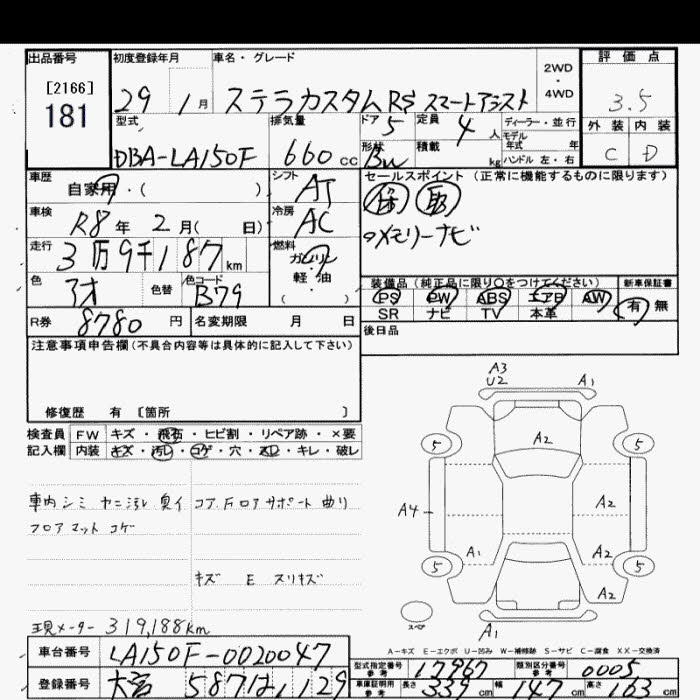 出品番号 初度登録年月 車名・グレード 2WD・4WD 評価点
[2166]
181
29 1月 ステラカスタムRS スマートアシスト 3.5
型式 排気量 ドア 定員 ディーラー・並行 外装 内装
DBA-LA150F 660cc 5 4人 モデル年式 年 C D
形状 積載 kg ハンドル 左・右
車歴 シフト セールスポイント (正常に機能するものに限ります)
自家用・( ) AT 保 取
車検 冷房
R8年 2月( 日) AC メモリーナビ
走行 燃料
3万9千187km ガソリン
軽・油
( )
色 色替 色コード 装備品 (純正品に限り○をつけてください) 新車保証書
アオ B79 PS PW ABS エアB AW 有 無
SR ナビ TV 本革
R券 8780円 名変期限 月 日 後日品
注意事項申告欄(不具合内容等は具体的に記入して下さい)
修復歴 有 [箇所 ]
検査員 FW キズ・飛石・ヒビ割・リペア跡・×要
記入欄 内装 キズ・汚レ・コゲ・穴・スレ・キレ・破レ
A3
U2 A1
A2
5 5
A4 A2
A1 A2
5 5
A2
スペア A1
車内シミ ヤニ汚レ 臭イ コア、フロアサポート曲り
フロアマットコゲ
キズ E スリキズ
現メーター 319,188km
A-キズ E-エクボ U-凹み W-補修跡 S-サビ C-腐食 XX-交換済
車台番号 LA150F-0020047 型式指定番号 参考 17967 類別区分番号 参考 0005
登録番号 大宮 587 は 129 車庫証明用 参考 長さ 339cm 幅 147cm 高さ 163cm